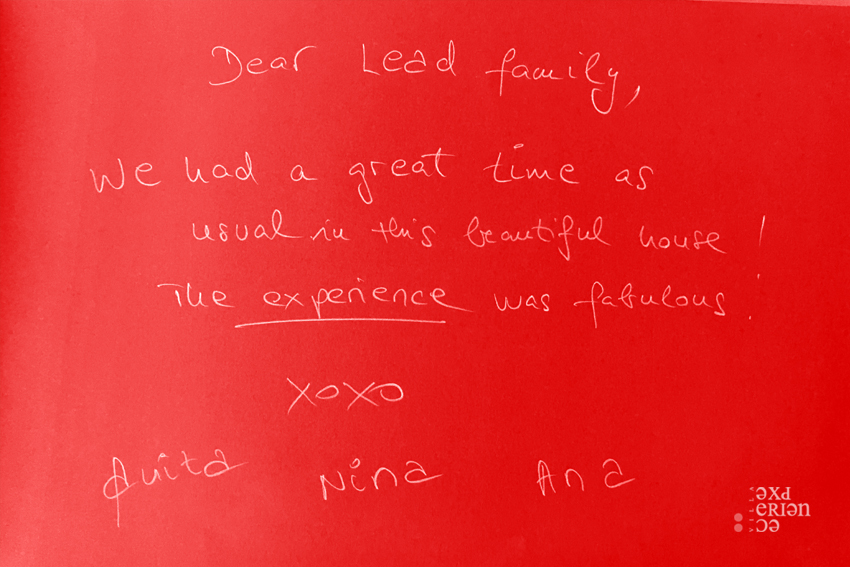 Dear Lead family,
We had a great time as
usual in this beautiful house !
The experience was fabulous !
xoxo
Anita Nina Ana
VILLA
EXP
ERIEN
CE